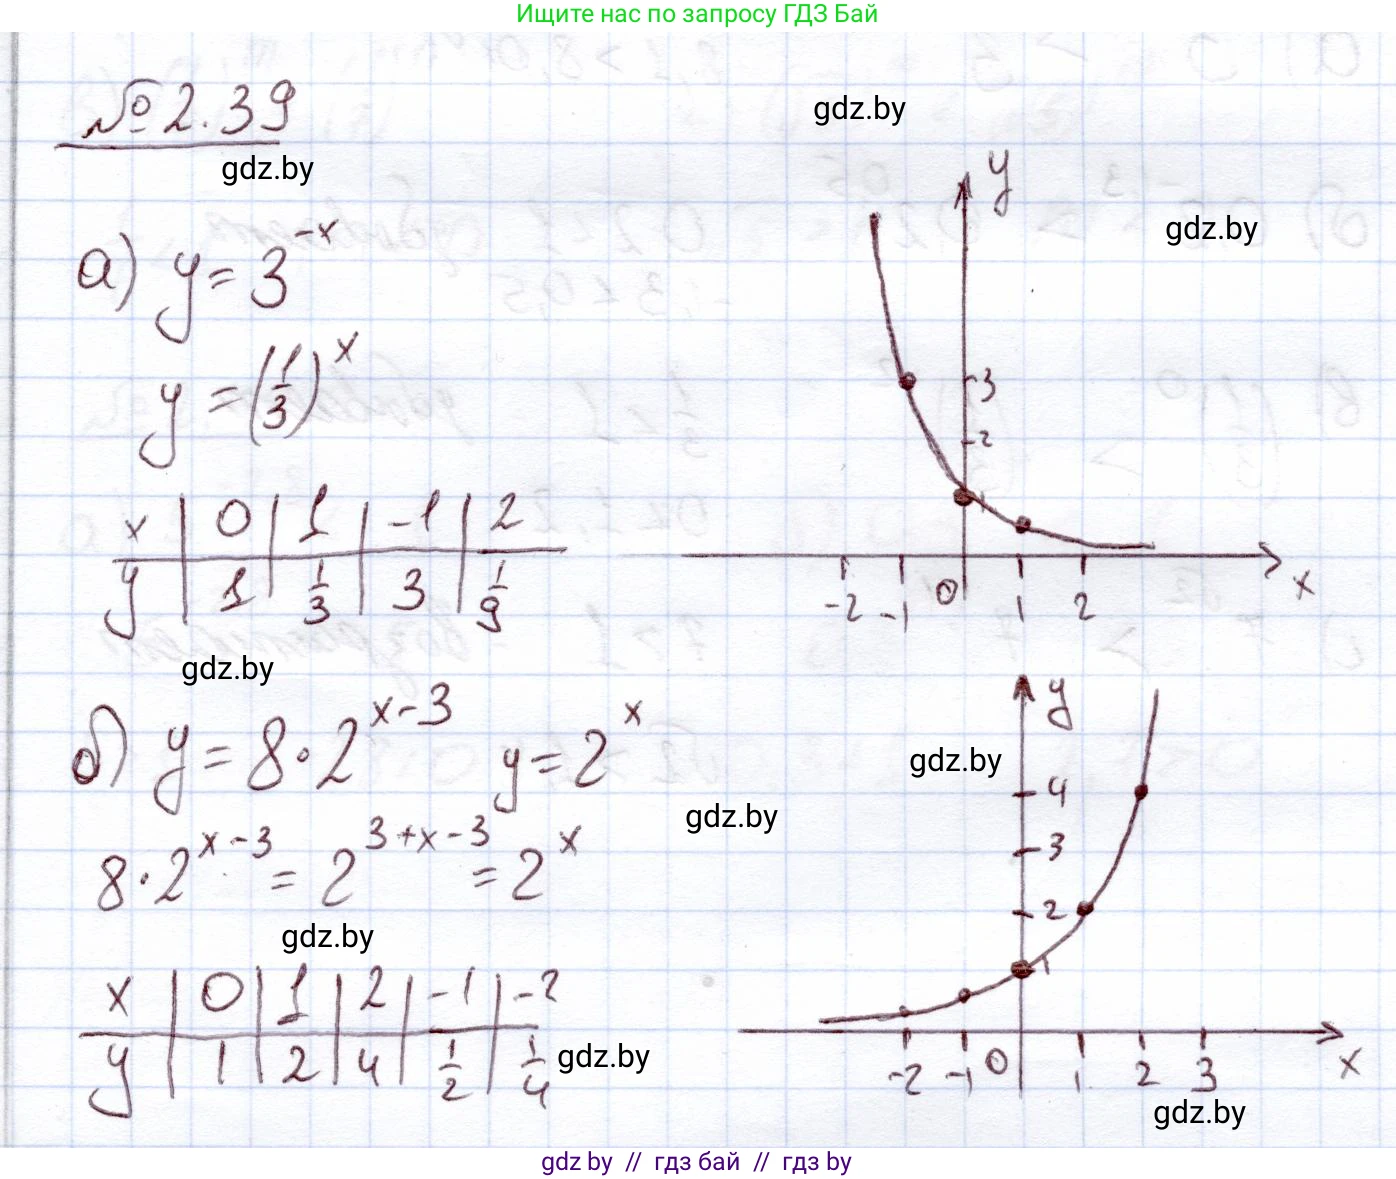 Ищите нас по запросу ГДЗ Бай
№ 2.39
gdz.by
gdz.by
gdz.by
а) y = 3^{-x}
y = (1/3)^x
x | 0 | 1 | -1 | 2
y | 1 | 1/3 | 3 | 1/9
y
3
2
1
-2 -1 0 1 2 x
gdz.by
б) y = 8 · 2^{x-3} y = 2^x
8 · 2^{x-3} = 2^{3+x-3} = 2^x
gdz.by
gdz.by
gdz.by
x | 0 | 1 | 2 | -1 | -2
y | 1 | 2 | 4 | 1/2 | 1/4
gdz.by
y
4
3
2
1
-2 -1 0 1 2 3 x
gdz.by
gdz by // гдз бай // гдз by